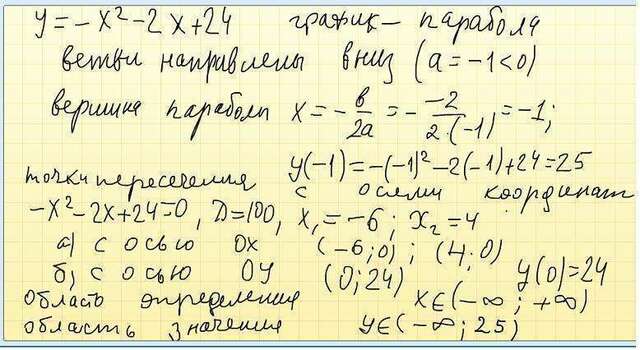 y = -x² - 2x + 24 график - парабола
ветви направлены вниз (a = -1 < 0)
вершина параболы x = -b/2a = - -2/2·(-1) = -1;
y(-1) = -(-1)² - 2(-1) + 24 = 25
точки пересечения с осями координат
-x² - 2x + 24 = 0, D = 100, x₁ = -6; x₂ = 4
а) с осью OX (-6; 0); (4; 0)
б) с осью OY (0; 24) y(0) = 24
область определения x ∈ (-∞; +∞)
область значения y ∈ (-∞; 25)